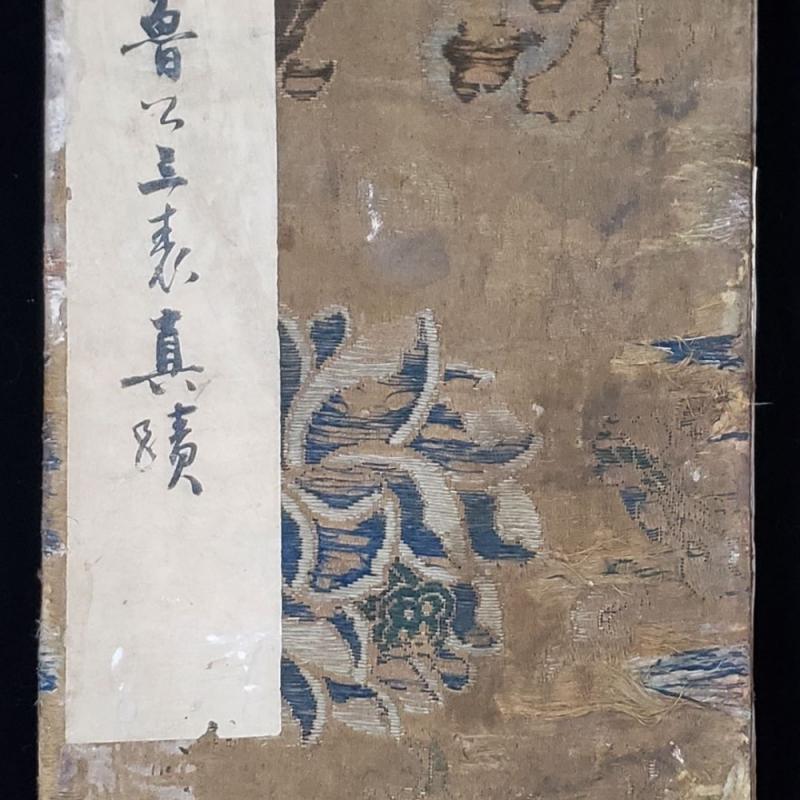 魯公三表真蹟